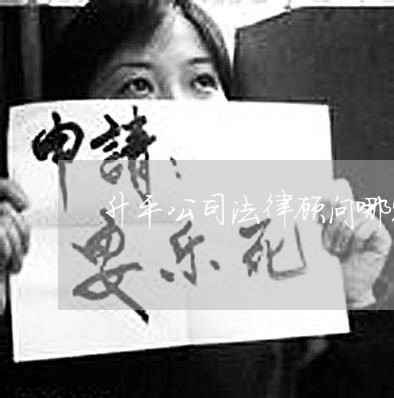 申請：
升平公司法律顾问哪
安乐死